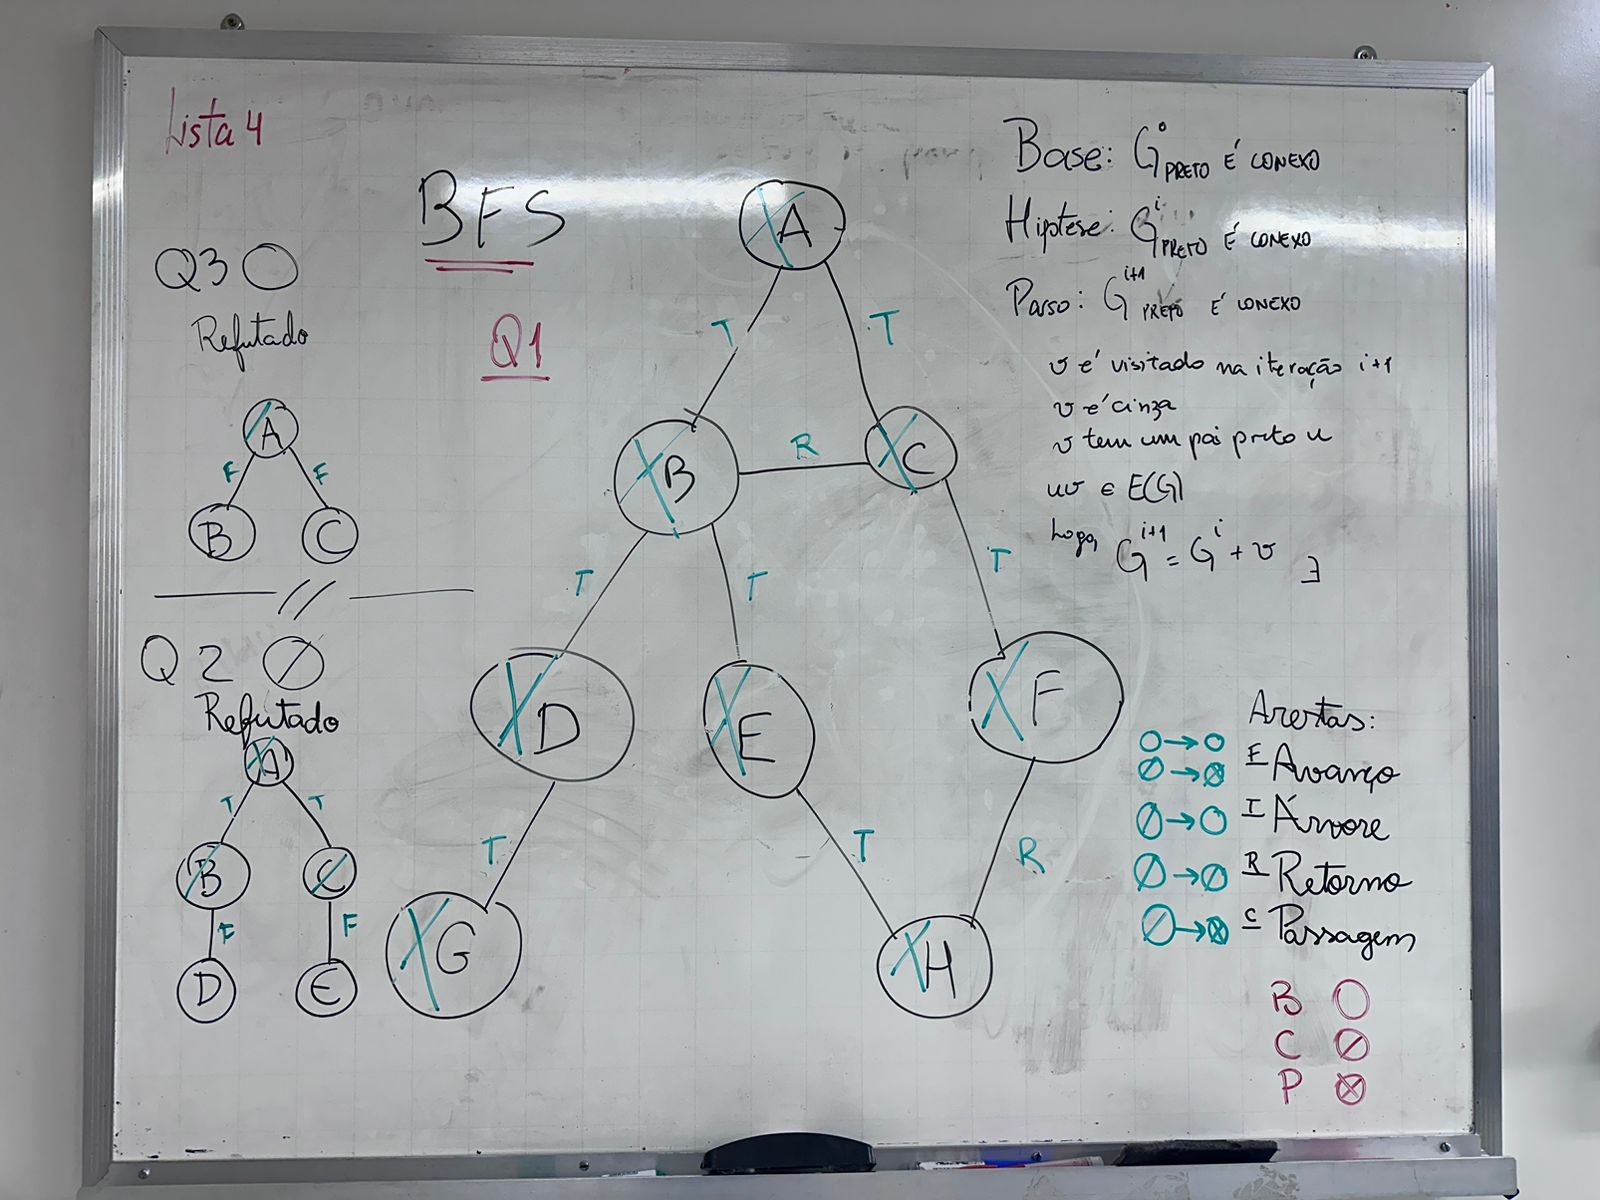 Lista 4
BFS
Q1
Q3
Refutado
A
F F
B C
Q2
Refutado
A
T T
B C
F F
D E
A
T T
B R C
T T T
D E F
T T R
G H
Base: G⁰ PRETO É CONEXO
Hiptese: Gⁱ PRETO É CONEXO
Passo: Gⁱ⁺¹ PRETO É CONEXO
v é visitado na iteração i+1
v é cinza
v tem um pai preto u
uv ∈ E(G)
Logo, Gⁱ⁺¹ = Gⁱ + v
Arestas:
F Avanço
T Árvore
R Retorno
C Passagem
B
C
P